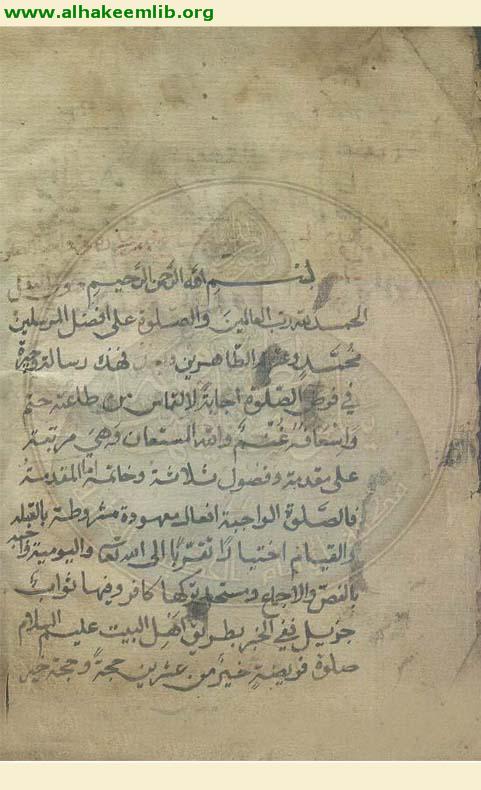 www.alhakeemlib.org
بسم الله الرحمن الرحيم
الحمد لله رب العالمين والصلوة على افضل المرسلين
محمد وعترته الطاهرين وبعد فهذه رسالة وجيزة
في فرض الصلوة اجابة لالتماس من طاعته حتم
واسعافه غنم والله المستعان وهي مرتبة
على مقدمة وفصول ثلاثة وخاتمة اما المقدمة
فالصلوة الواجبة افعال معهودة مشروطة بالقبلة
والقيام اختيارا تقربا الى الله تعالى واليومية واجبة
بالنص والاجماع ومستحل تركها كافر وفيها ثواب
جزيل ففي الخبر بطريق اهل البيت عليهم السلام
صلوة فريضة خير من عشرين حجة وحجة خير